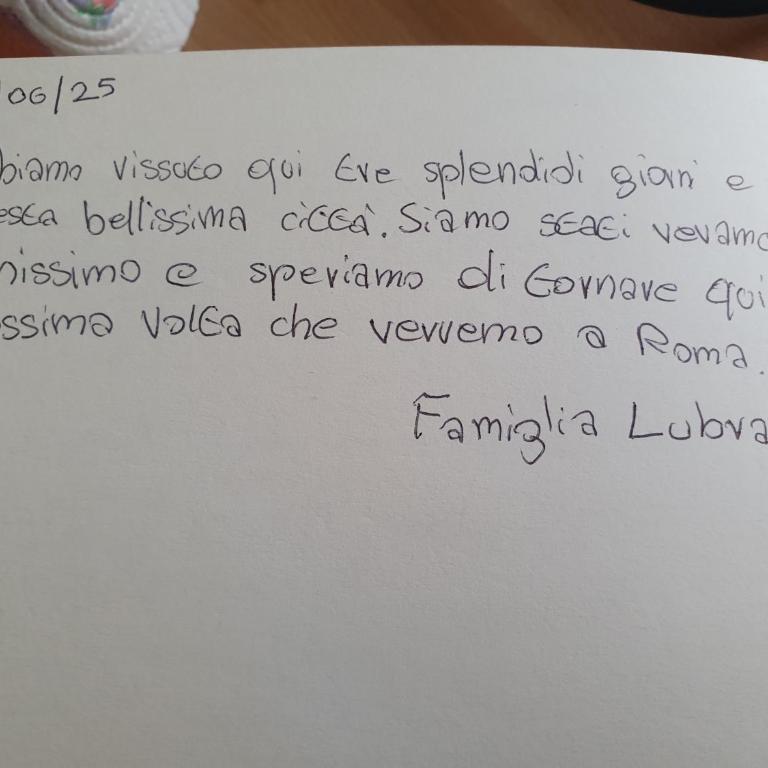 /06/25
biamo vissuto qui tre splendidi giorni e
esta bellissima città. Siamo stati veramo
nissimo e speriamo di tornare qui
ssima volta che verremo a Roma.
Famiglia Lubra